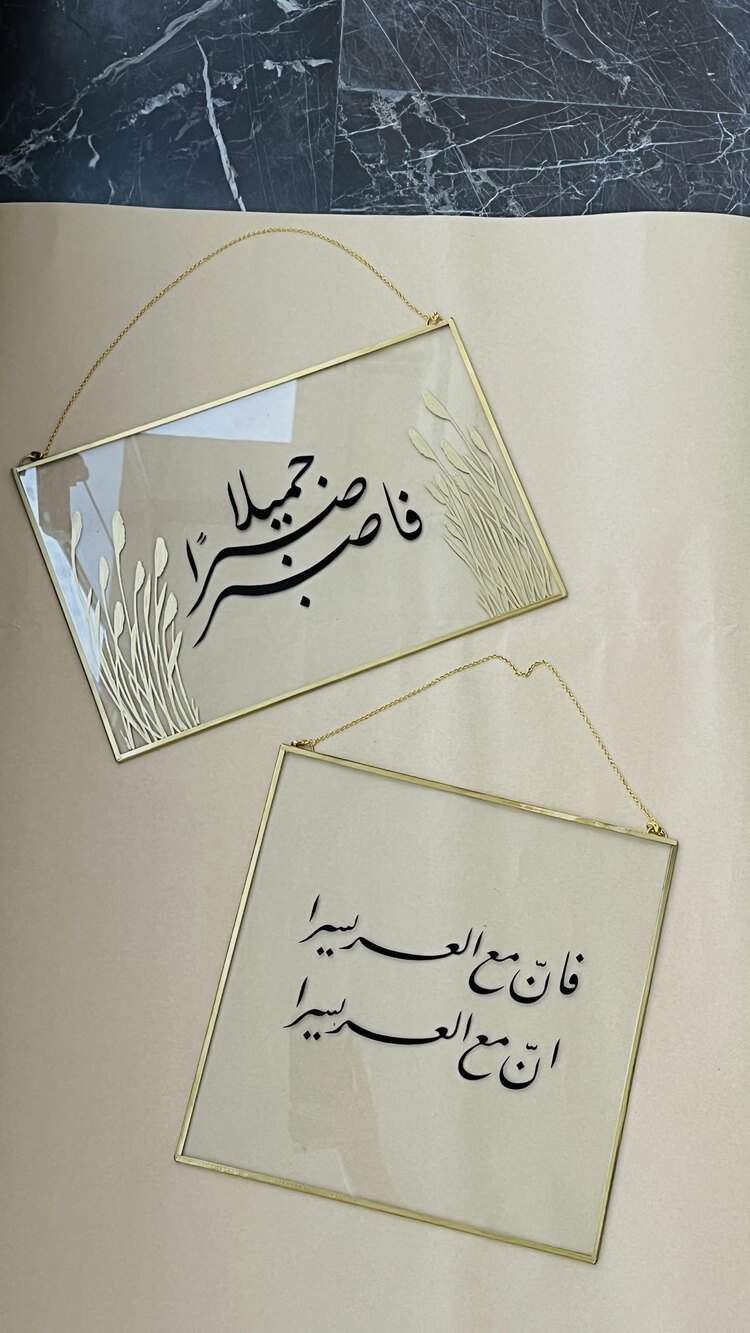 فاصبر صبرًا جميلا
فانّ مع العسر يسرا
انّ مع العسر يسرا